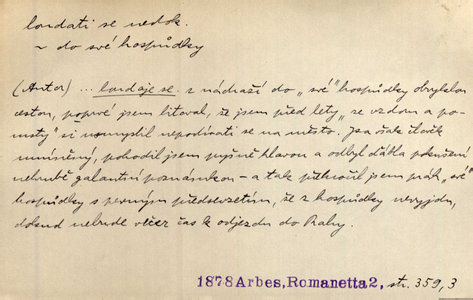 loudati se nedok.
~ do své hospůdky
(Autor) ... loudaje se z nádraží do „své" hospůdky obvyklou
cestou, poprvé jsem litoval, že jsem před lety „ze vzdoru a po-
msty" si usmyslil nepodívati se na město. Jsa však člověk
umíněný, pohodil jsem pyšně hlavou a odbyl ďábla pokušení
nehrubě galantní poznámkou – a tak překročil jsem práh „své"
hospůdky s pevným předsevzetím, že z hospůdky nevyjdu,
dokud nebude věčer čas k odjezdu do Prahy.
1878 Arbes, Romanetta 2, str. 359,3